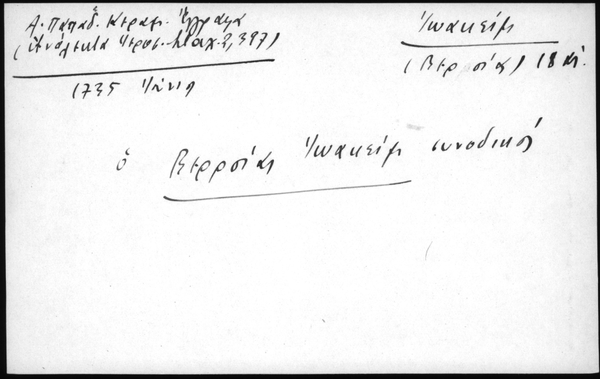 Α. Παπαδ. Κεραμ. Έγγραφα
(Ανάλεκτα Ιερος. Σταχ. 2, 397)
1735 Ιούνιο
Ιωακείμ
(Βερροίας) 18 αι.
ὁ Βερροίας Ιωακείμ συνοδικός